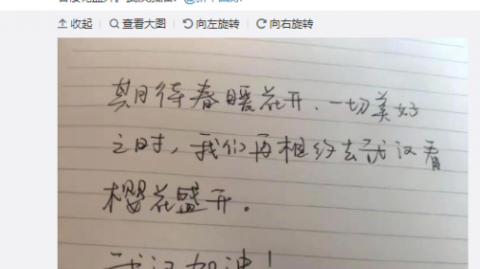 收起 查看大图 向左旋转 向右旋转
期待春暖花开、一切美好
之时，我们再相约去武汉看
樱花盛开。
武汉加油！